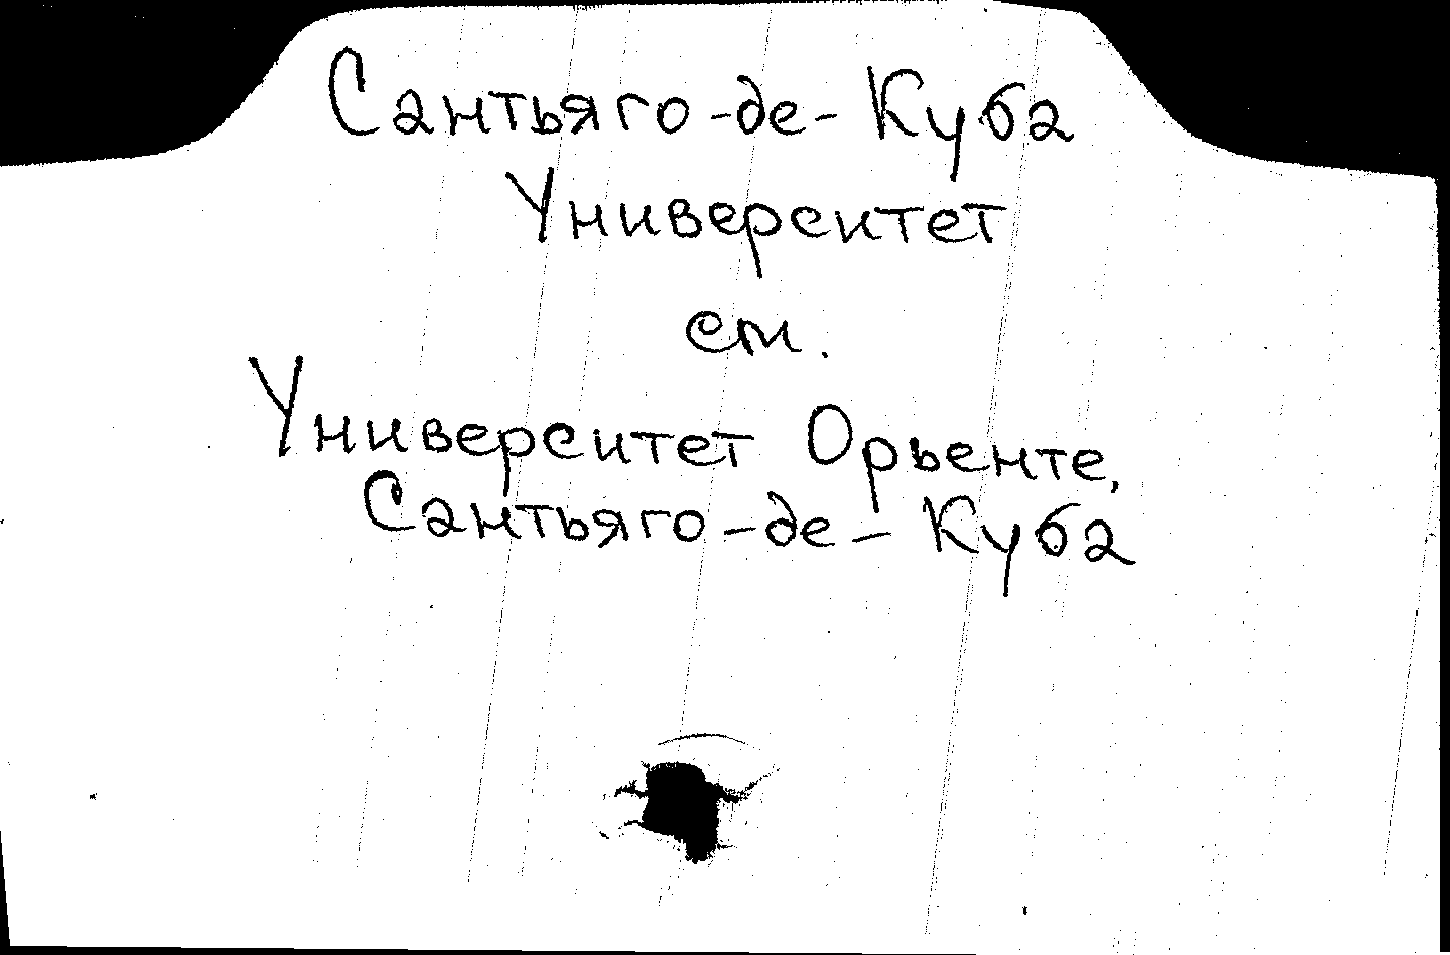 Сантьяго-де-Куба
Университет
см.
Университет Орьенте,
Сантьяго-де-Куба